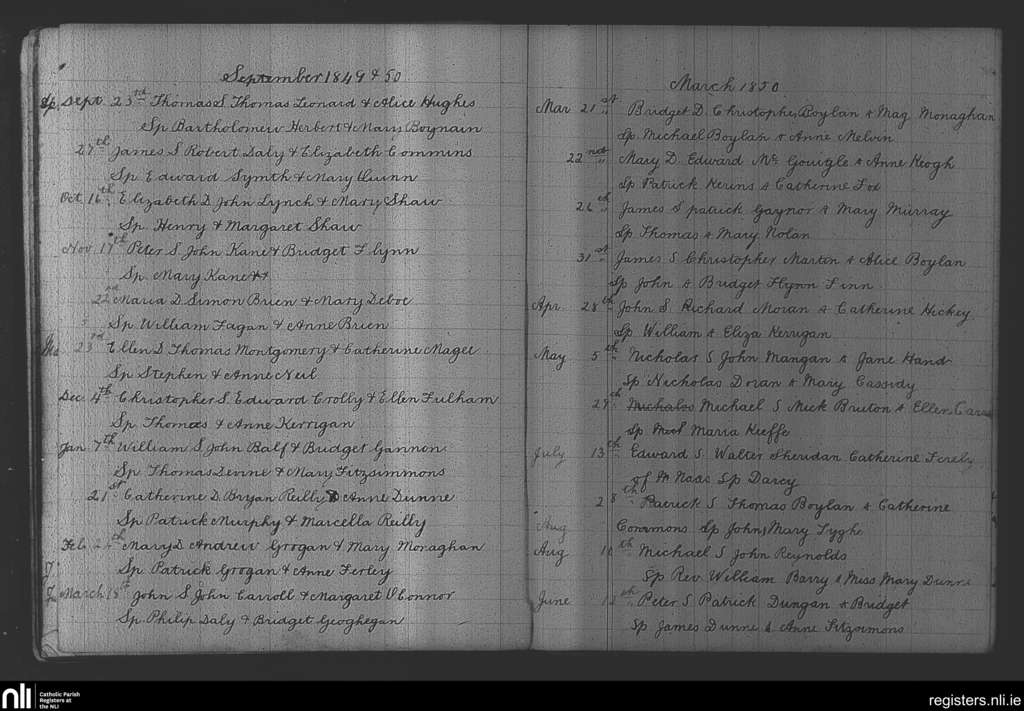 September 1849 & 50
Sept 23rd Thomas S Thomas Leonard & Alice Hughes
Sp Bartholomew Herbert & Mary Boynain
27th James S Robert Daly & Elizabeth Commins
Sp Edward Symth & Mary Quinn
Oct 16th Elizabeth D John Lynch & Mary Shaw
Sp Henry & Margaret Shaw
Nov. 17th Peter S John Kane & Bridget Flynn
Sp Mary Kane
22nd Maria D Simon Brien & Mary Deboe
Sp William Fagan & Anne Brien
23rd Ellen D Thomas Montgomery & Catherine Magee
Sp Stephen & Anne Neil
Dec 4th Christopher S. Edward Crolly & Ellen Fulham
Sp Thomas & Anne Kerrigan
Jan 7th William S John Balf & Bridget Gannon
Sp Thomas Devine & Mary Fitzsimmons
21st Catherine D Bryan Reilly & Anne Dunne
Sp Patrick Murphy & Marcella Reilly
Feb 24th Mary D Andrew Grogan & Mary Monaghan
Sp Patrick Grogan & Anne Ferley
March 18th John S John Carroll & Margaret O'Connor
Sp Philip Daly & Bridget Geoghegan
March 1850
Mar 21st Bridget D. Christopher Boylan & Mag Monaghan
Sp Michael Boylan & Anne Melvin
22nd Mary D Edward Mc Gouigle & Anne Keogh
Sp Patrick Kerins & Catherine Fox
26th James S patrick Gaynor & Mary Murray
Sp Thomas & Mary Nolan
31st James S Christopher Martin & Alice Boylan
Sp John & Bridget Flynn Finn
Apr 28th John S Richard Moran & Catherine Hickey
Sp William & Eliza Kerrigan
May 5th Nicholas S John Mangan & Jane Hand
Sp Nicholas Doran & Mary Cassidy
27th Michalos Michael S Mick Bruton & Ellen
Sp Maria Kieffe
July 13th Edward S Walter Sheridan Catherine
of Sp Darcy
28th Patrick S Thomas Boylan & Catherine
Aug Commons Sp John, Mary Tyghe
Aug 10th Michael S John Reynolds
Sp Rev William Barry & Miss Mary Dunne
June 12th Peter S Patrick Dungan & Bridget
Sp James Dunne & Anne Fitzsimons
nli
Catholic Parish
Registers at
the NLI
registers.nli.ie